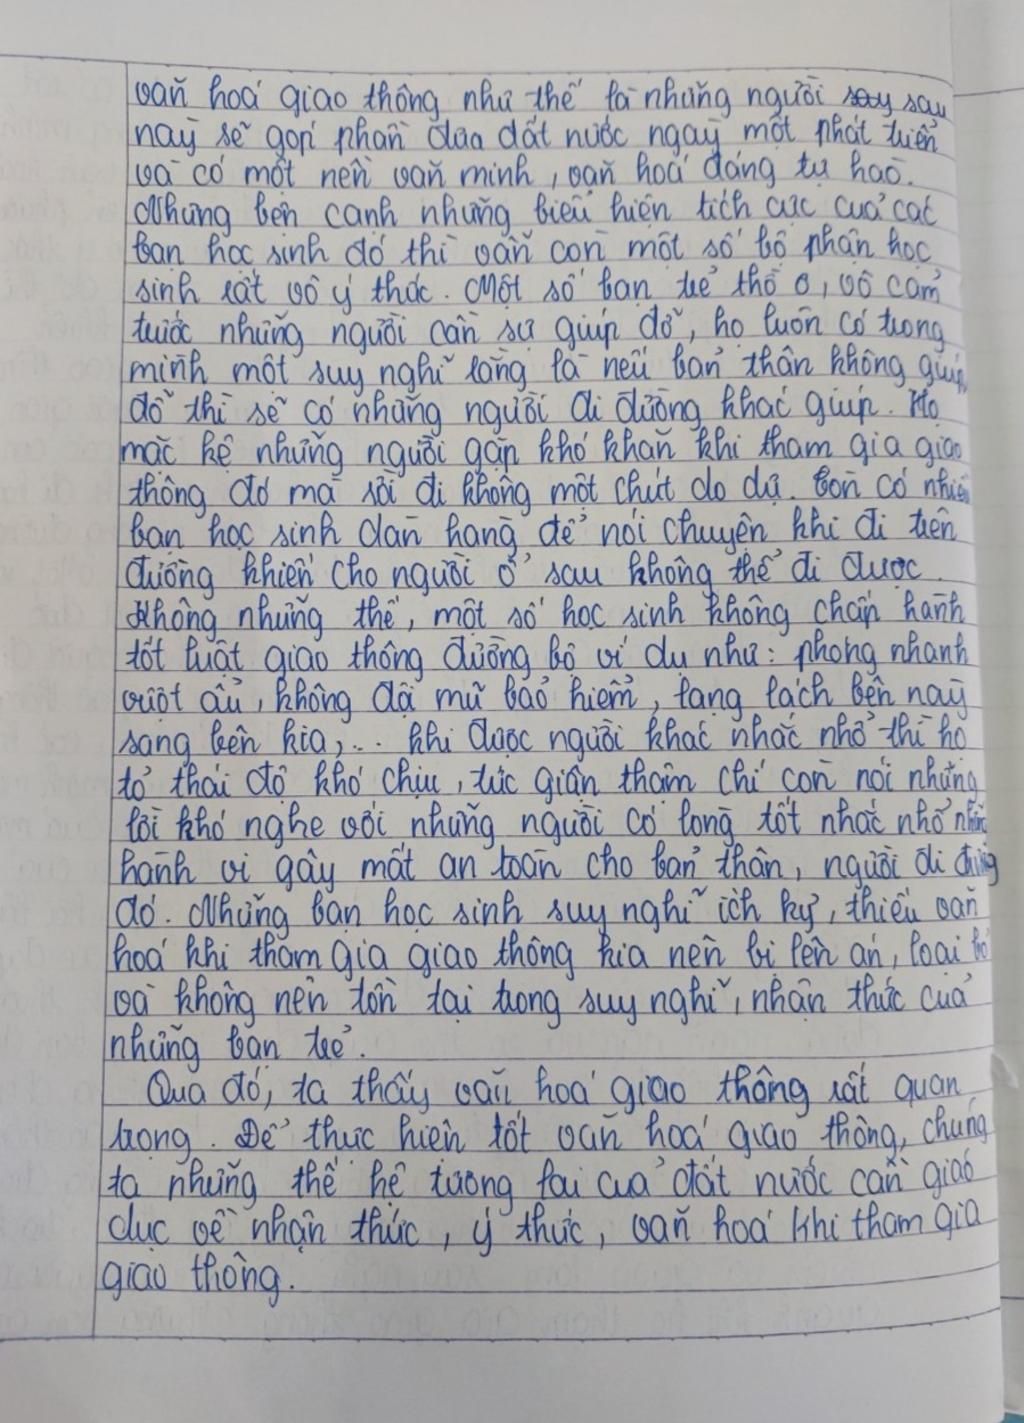 văn hoá giao thông như thế là những người say sau
này sẽ góp phần đưa đất nước ngày một phát triển
và có một nền văn minh, văn hoá đáng tự hào.
Nhưng bên cạnh những biểu hiện tích cực của các
bạn học sinh đó thì vẫn còn một số bộ phận học
sinh rất vô ý thức. Một số bạn trẻ thờ ơ, vô cảm
trước những người cần sự giúp đỡ, họ luôn có trong
mình một suy nghĩ rằng là nếu bản thân không giúp
đỡ thì sẽ có những người đi đường khác giúp. Họ
mặc kệ những người gặp khó khăn khi tham gia giao
thông đó mà rời đi không một chút do dự. Còn có nhiều
bạn học sinh dàn hàng để nói chuyện khi đi trên
đường khiến cho người ở sau không thể đi được.
Không những thế, một số học sinh không chấp hành
tốt luật giao thông đường bộ ví dụ như: phóng nhanh
vượt ẩu, không đội mũ bảo hiểm, lạng lách bên này
sang bên kia,... khi được người khác nhắc nhở thì họ
tỏ thái độ khó chịu, tức giận thậm chí còn nói những
lời khó nghe với những người có lòng tốt nhắc nhở những
hành vi gây mất an toàn cho bản thân, người đi đường
đó. Những bạn học sinh suy nghĩ ích kỷ, thiếu văn
hoá khi tham gia giao thông kia nên bị lên án, loại bỏ
và không nên tồn tại trong suy nghĩ, nhận thức của
những bạn trẻ.
Qua đó, ta thấy văn hoá giao thông rất quan
trọng. Để thực hiện tốt văn hoá giao thông, chúng
ta những thế hệ tương lai của đất nước cần giáo
dục về nhận thức, ý thức, văn hoá khi tham gia
giao thông.